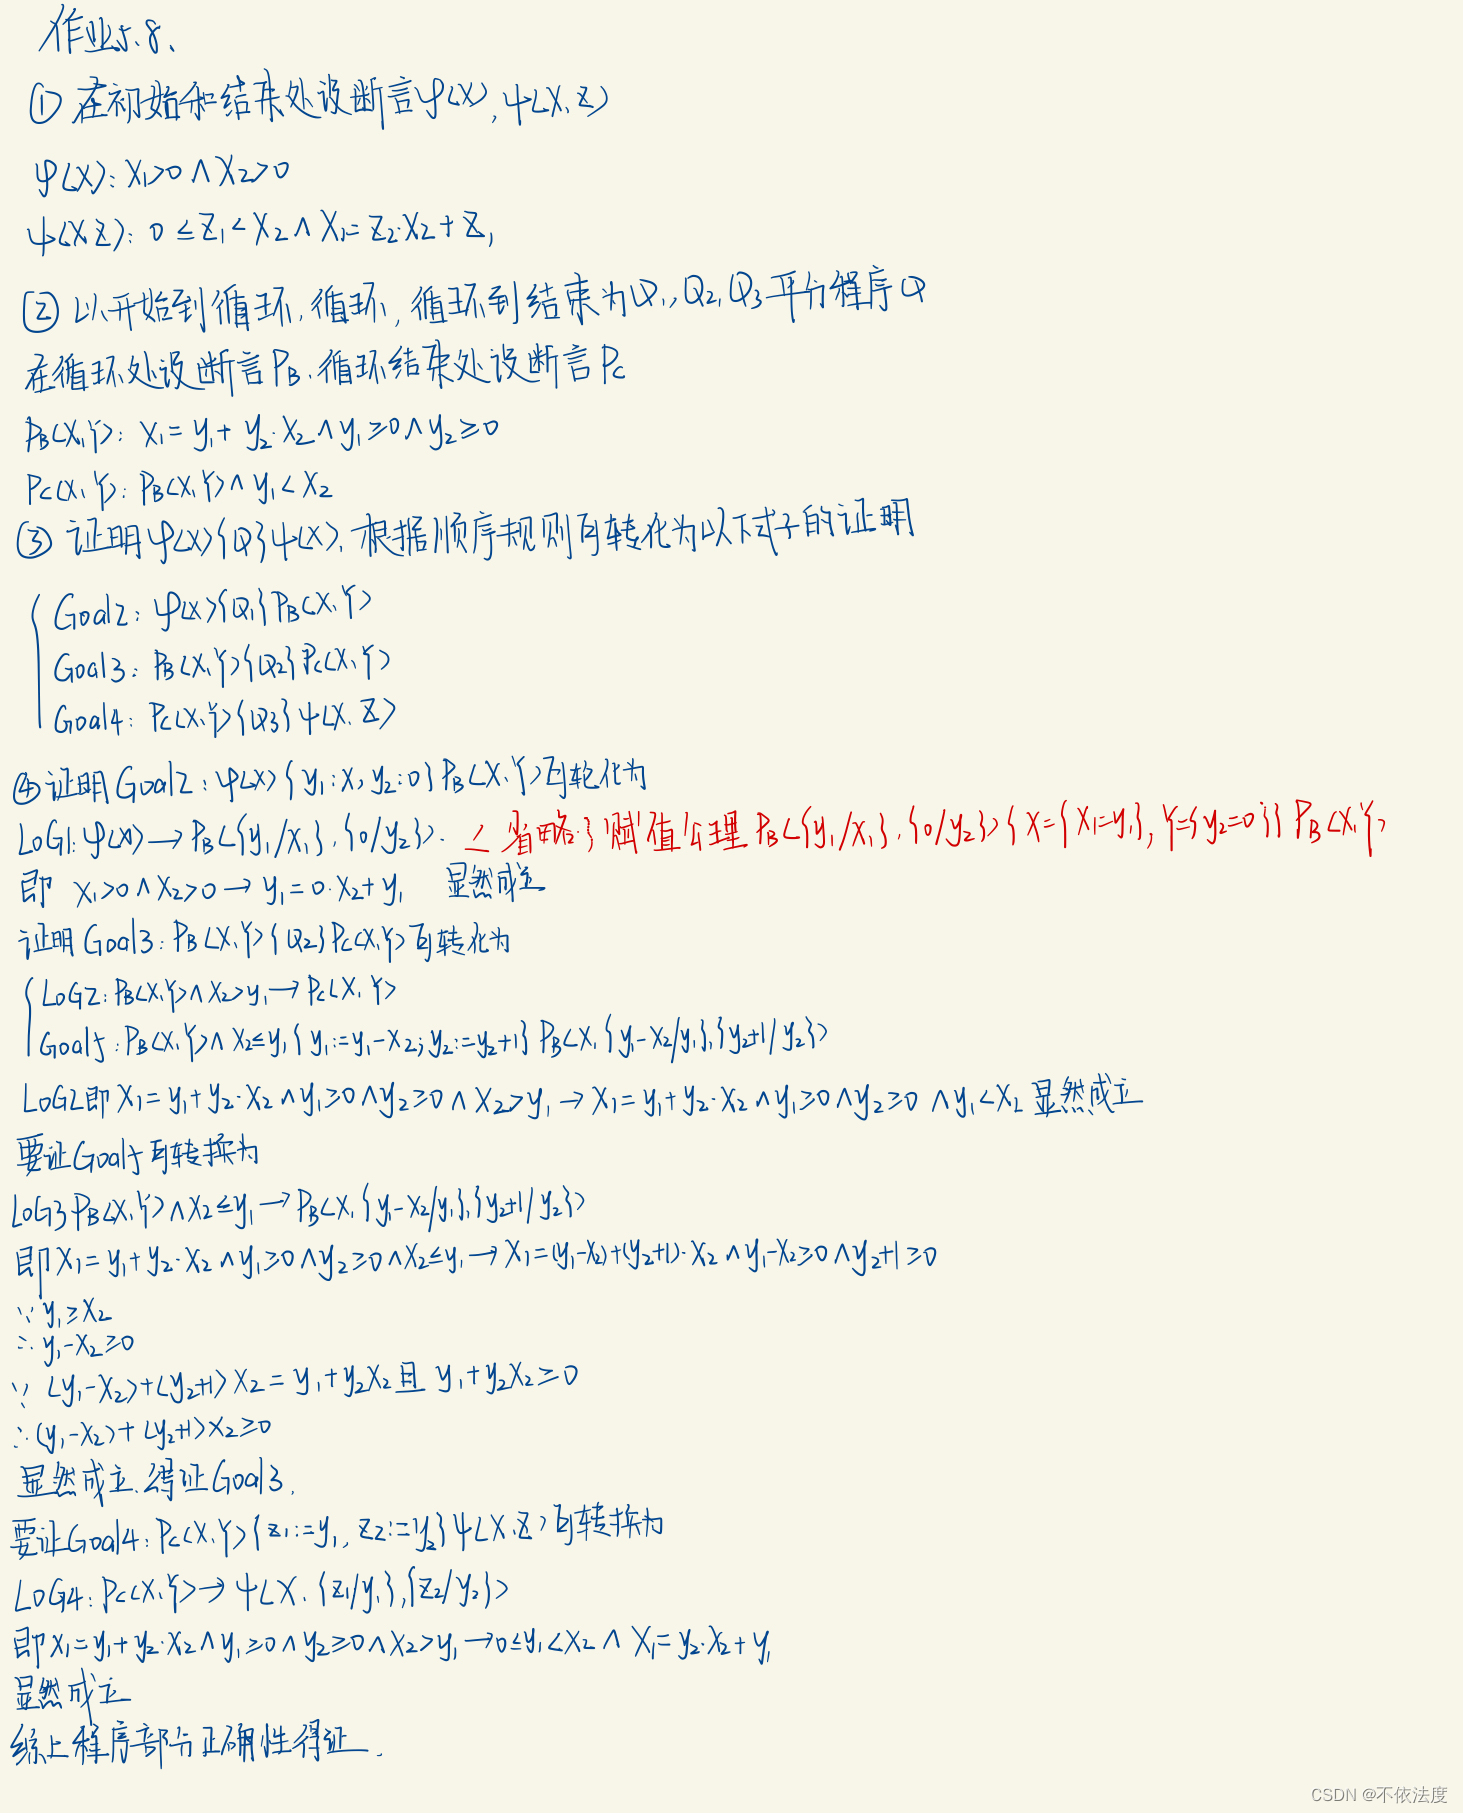 作业5.8.
① 在初始和结束处设断言φ(X), ψ(X,Z)
φ(X): X₁>0 ∧ X₂>0
ψ(X,Z): 0 ≤ Z₁ < X₂ ∧ X₁ = Z₂·X₂ + Z₁
② 以开始到循环, 循环, 循环到结束为Q₁, Q₂, Q₃ 平分程序Q
在循环处设断言P_B, 循环结束处设断言P_C
P_B(X,Y): X₁ = y₁ + y₂·X₂ ∧ y₁ ≥ 0 ∧ y₂ ≥ 0
P_C(X,Y): P_B(X,Y) ∧ y₁ < X₂
③ 证明φ(X){Q}ψ(X), 根据顺序规则可转化为以下式子的证明
Goal2: φ(X){Q₁}P_B(X,Y)
Goal3: P_B(X,Y){Q₂}P_C(X,Y)
Goal4: P_C(X,Y){Q₃}ψ(X,Z)
④ 证明Goal2: φ(X){y₁:X, y₂:0}P_B(X,Y)可转化为
LOG1: φ(X) → P_B({y₁/X₁},{0/y₂}). ∠省略了赋值公理 P_B({y₁/X₁},{0/y₂}){X={X₁=y₁}, Y={y₂=0}} P_B(X,Y)
即 X₁>0 ∧ X₂>0 → y₁ = 0·X₂ + y₁ 显然成立
证明Goal3: P_B(X,Y){Q₂}P_C(X,Y)可转化为
LOG2: P_B(X,Y) ∧ X₂>y₁ → P_C(X,Y)
Goal5: P_B(X,Y) ∧ X₂≤y₁{y₁:=y₁-X₂; y₂:=y₂+1} P_B(X,{y₁-X₂/y₁},{y₂+1/y₂})
LOG2即 X₁ = y₁ + y₂·X₂ ∧ y₁≥0 ∧ y₂≥0 ∧ X₂>y₁ → X₁ = y₁ + y₂·X₂ ∧ y₁≥0 ∧ y₂≥0 ∧ y₁<X₂ 显然成立
要证Goal5可转换为
LOG3 P_B(X,Y) ∧ X₂≤y₁ → P_B(X,{y₁-X₂/y₁},{y₂+1/y₂})
即 X₁ = y₁ + y₂·X₂ ∧ y₁≥0 ∧ y₂≥0 ∧ X₂≤y₁ → X₁ = (y₁-X₂)+(y₂+1)·X₂ ∧ y₁-X₂≥0 ∧ y₂+1≥0
∵ y₁≥X₂
∴ y₁-X₂≥0
∵ (y₁-X₂)+(y₂+1)X₂ = y₁+y₂X₂ 且 y₁+y₂X₂≥0
∴ (y₁-X₂)+(y₂+1)X₂≥0
显然成立, 得证Goal3.
要证Goal4: P_C(X,Y){z₁:=y₁, z₂:=y₂}ψ(X,Z)可转换为
LOG4: P_C(X,Y) → ψ(X,{z₁/y₁},{z₂/y₂})
即 X₁ = y₁ + y₂·X₂ ∧ y₁≥0 ∧ y₂≥0 ∧ X₂>y₁ → 0≤y₁<X₂ ∧ X₁ = y₂·X₂ + y₁
显然成立
综上程序部分正确性得证.
CSDN @不依法度